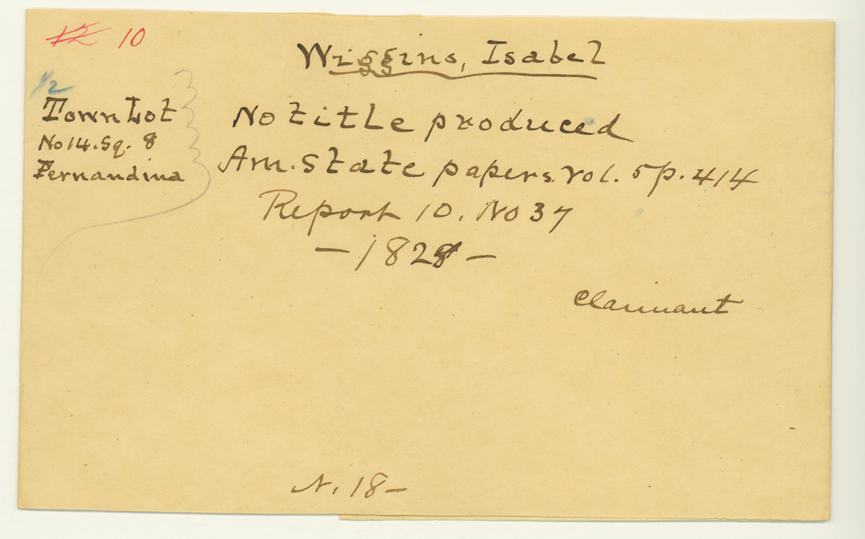 10
Wiggins, Isabel
1/2
Town Lot
No 14. Sq. 8
Fernandina
No title produced
Am. State papers. Vol. 5 p. 414
Report 10. No 37
— 1828 —
Claimant
N. 18 —